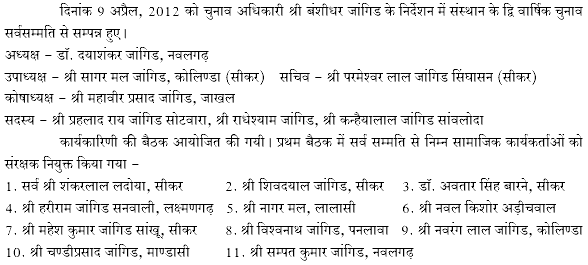 दिनांक 9 अप्रैल, 2012 को चुनाव अधिकारी श्री बंशीधर जांगिड के निर्देशन में संस्थान के द्वि वार्षिक चुनाव
सर्वसम्मति से सम्पन्न हुए।
अध्यक्ष – डॉ. दयाशंकर जांगिड, नवलगढ़
उपाध्यक्ष – श्री सागर मल जांगिड, कोलिण्डा (सीकर) सचिव – श्री परमेश्वर लाल जांगिड सिंघासन (सीकर)
कोषाध्यक्ष – श्री महावीर प्रसाद जांगिड, जाखल
सदस्य – श्री प्रहलाद राय जांगिड सोटवारा, श्री राधेश्याम जांगिड, श्री कन्हैयालाल जांगिड सांवलोदा
कार्यकारिणी की बैठक आयोजित की गयी। प्रथम बैठक में सर्व सम्मति से निम्न सामाजिक कार्यकर्ताओं को
संरक्षक नियुक्त किया गया –
1. सर्व श्री शंकरलाल लदोया, सीकर 2. श्री शिवदयाल जांगिड, सीकर 3. डॉ. अवतार सिंह बारने, सीकर
4. श्री हरीराम जांगिड सनवाली, लक्ष्मणगढ़ 5. श्री नागर मल, लालासी 6. श्री नवल किशोर अड़ीचवाल
7. श्री महेश कुमार जांगिड सांखू, सीकर 8. श्री विश्वनाथ जांगिड, पनलावा 9. श्री नवरंग लाल जांगिड, कोलिण्डा
10. श्री चण्डीप्रसाद जांगिड, माण्डासी 11. श्री सम्पत कुमार जांगिड, नवलगढ़